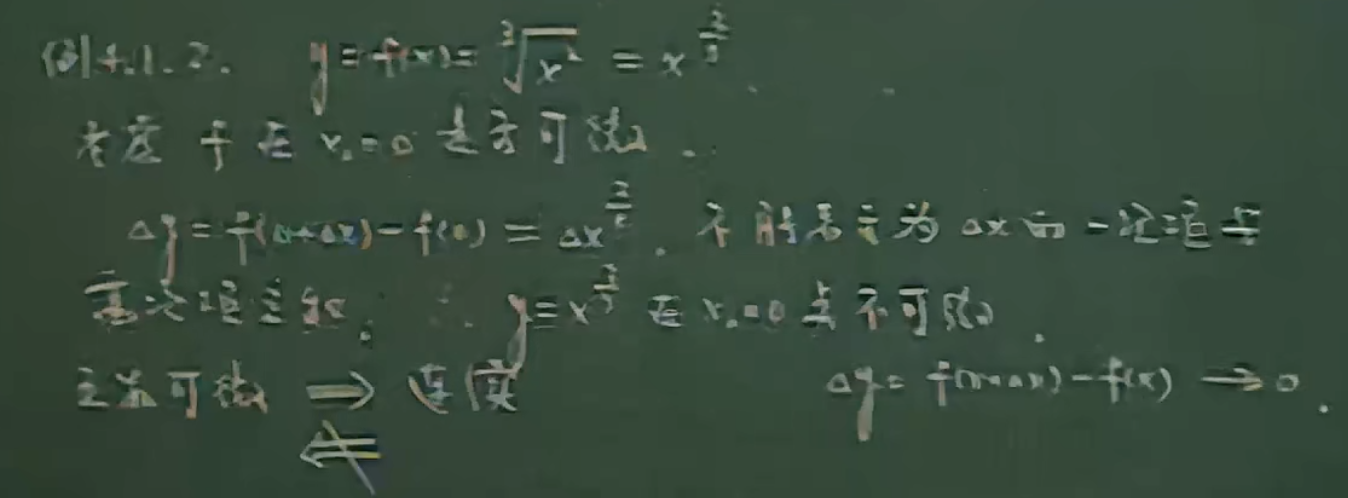 例4.1.2. y=f(x)=∛x² = x^{2/3}
考虑 f 在 x₀=0 是否可微.
Δy=f(0+Δx)-f(0)=Δx^{2/3}. 不能表示为 Δx的一次项与
高次项之和. ∴ y=x^{2/3} 在 x₀=0 点不可微.
注意可微 ⇒ 连续 Δy=f(x+Δx)-f(x)→0.
⇍